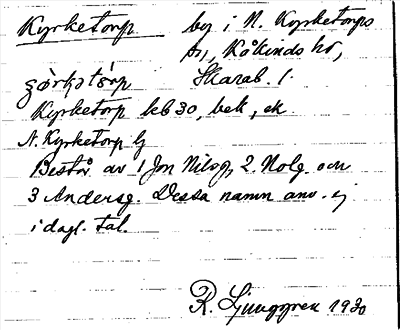 Kyrketorp by i N. Kyrketorps
sn, Kåkinds hd,
Skarab. l.
Kyrketorp kb 30, bek, ek
N. Kyrketorp
Består av 1 Jon Nilsg, 2. Nolg. och
3 Andersg. Dessa namn anv. ej
i dagl. tal.
R. Ljunggren 1930